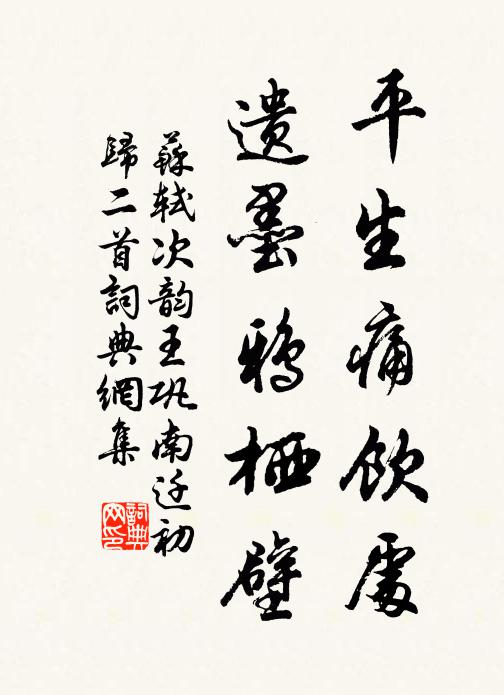 平生痛飲處
遺墨鴉栖壁
蘇軾次韵王巩南迁初
歸二首詞典網集
詞典
网印